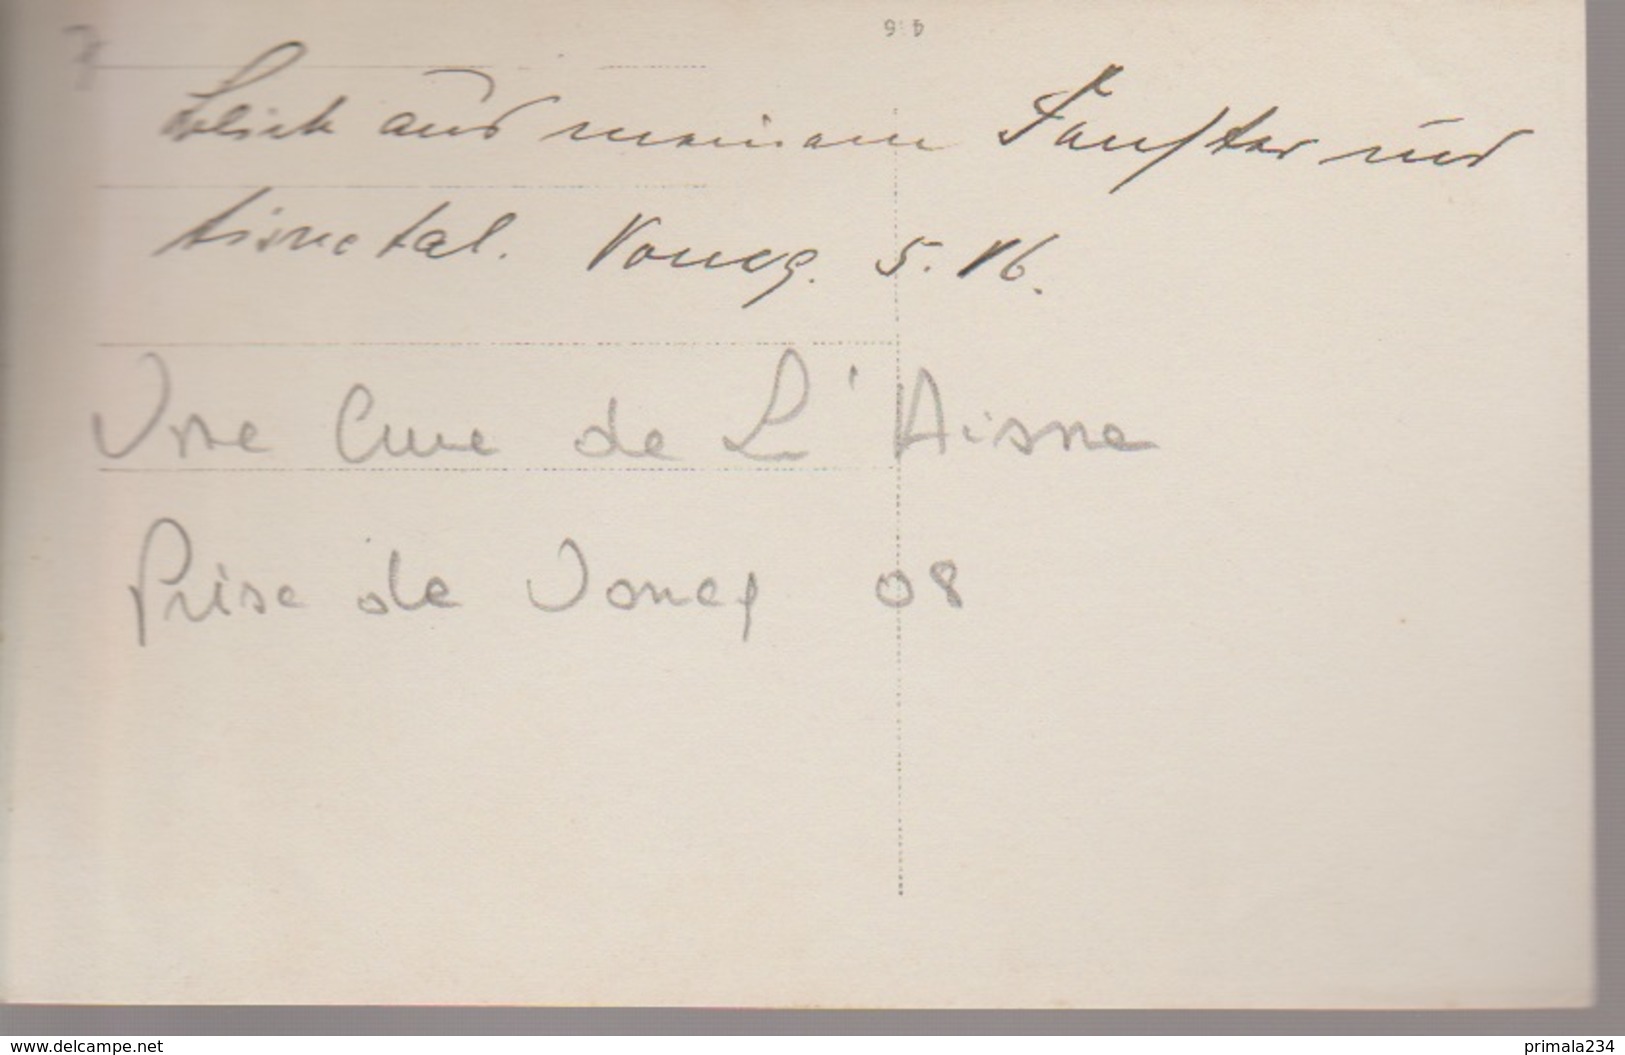 Blick aus meinem Fenster ins
Aisnetal. Voncq. 5. 16.
Une Cure de L'Aisne
Prise de Voncq 08
www.delcampe.net
primala234